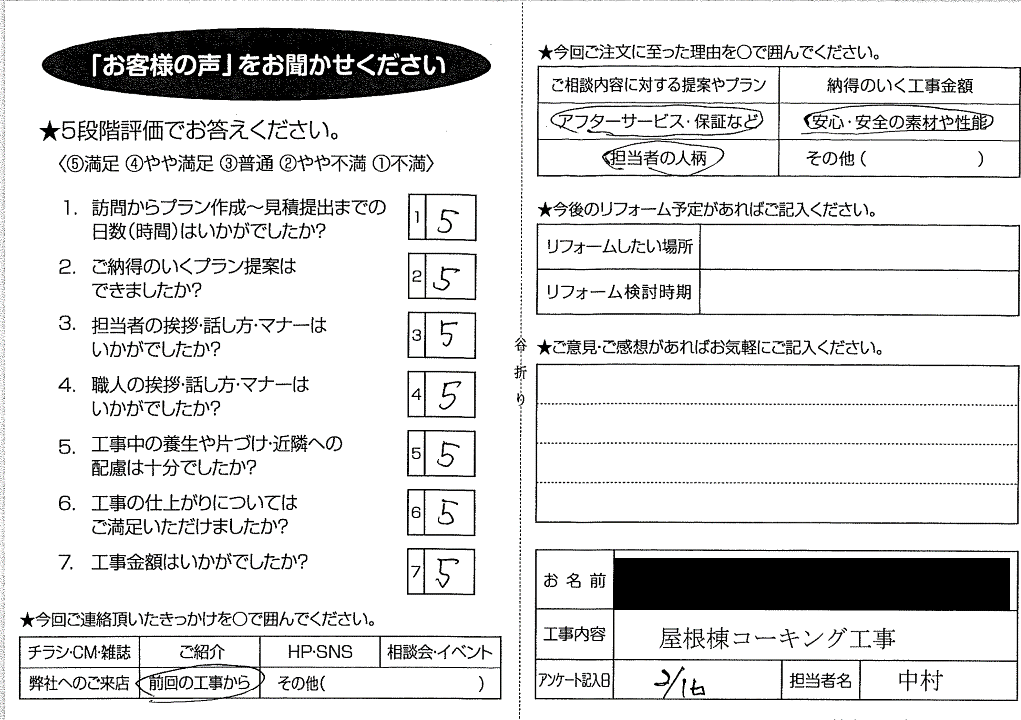 「お客様の声」をお聞かせください
★5段階評価でお答えください。
〈⑤満足 ④やや満足 ③普通 ②やや不満 ①不満〉
1. 訪問からプラン作成～見積提出までの
日数(時間)はいかがでしたか?
1 5
2. ご納得のいくプラン提案は
できましたか?
2 5
3. 担当者の挨拶・話し方・マナーは
いかがでしたか?
3 5
4. 職人の挨拶・話し方・マナーは
いかがでしたか?
4 5
5. 工事中の養生や片づけ・近隣への
配慮は十分でしたか?
5 5
6. 工事の仕上がりについては
ご満足いただけましたか?
6 5
7. 工事金額はいかがでしたか?
7 5
★今回ご連絡頂いたきっかけを○で囲んでください。
チラシ・CM・雑誌 ご紹介 HP・SNS 相談会・イベント
弊社へのご来店 前回の工事から その他( )
谷折り
★今回ご注文に至った理由を○で囲んでください。
ご相談内容に対する提案やプラン 納得のいく工事金額
アフターサービス・保証など 安心・安全の素材や性能
担当者の人柄 その他( )
★今後のリフォーム予定があればご記入ください。
リフォームしたい場所
リフォーム検討時期
★ご意見・ご感想があればお気軽にご記入ください。
お名前
工事内容 屋根棟コーキング工事
アンケート記入日 2/16 担当者名 中村